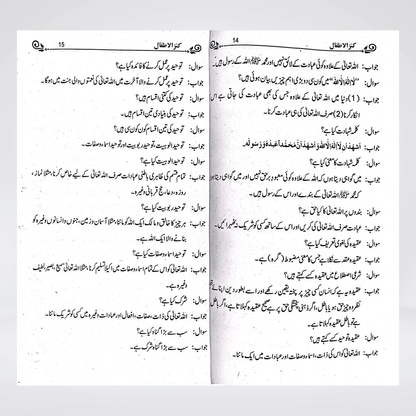 14 کنز الاطفال
جواب: اللہ تعالیٰ کے علاوہ کوئی عبادت کے لائق نہیں اور محمد ﷺ اللہ کے رسول ہیں۔
سوال: "لا الہ الا اللہ" میں کون سی دو بڑی اہم چیزیں بیان ہوئی ہیں؟
جواب: (1) دنیا میں اللہ تعالیٰ کے علاوہ جس کی بھی عبادت کی جاتی ہے اس کا
انکار کرنا (2) صرف اللہ تعالیٰ ہی کی عبادت کرنا۔
سوال: کلمہ شہادت کیا ہے؟
جواب: اشھد ان لا الہ الا اللہ و اشھد ان محمدا عبدہ و رسولہ۔
سوال: کلمہ شہادت کا معنی کیا ہے؟
جواب: میں گواہی دیتا ہوں کہ اللہ کے علاوہ کوئی معبود برحق نہیں اور میں گواہی دیتا ہوں
کہ محمد ﷺ اللہ تعالیٰ کے بندے اور اس کے رسول ہیں۔
سوال: بندوں پر اللہ تعالیٰ کا کیا حق ہے؟
جواب: وہ صرف اللہ تعالیٰ کی عبادت کریں اور اس کے ساتھ کسی کو شریک نہ ٹھہرائیں۔
سوال: عقیدہ کی لغوی تعریف کیا ہے؟
جواب: عقیدہ عقد سے نکلا ہے جس کا معنی مضبوط (گرہ) ہے۔
سوال: شرعی اصطلاح میں عقیدہ کسے کہتے ہیں؟
جواب: عقیدہ یہ ہے کہ انسان کسی چیز پر پختہ یقین رکھے اور اسے بطور دین اپنائے
سوال: عقیدہ توحید کسے کہتے ہیں؟
جواب: اللہ تعالیٰ کو اس کی ذات، اسماء وصفات اور عبادات میں ایک ماننا۔
15 کنز الاطفال
سوال: توحید پر عمل کرنے کا فائدہ کیا ہے؟
جواب: توحید پر عمل کرنے والا آخرت میں اللہ تعالیٰ کی نعمتوں والی جنت میں ہوگا۔
سوال: توحید کی کتنی اقسام ہیں؟
جواب: توحید کی بنیادی تین اقسام ہیں۔
سوال: توحید کی تین اقسام کون کون سی ہیں؟
جواب: توحید الوہیت، توحید ربوبیت، توحید اسماء وصفات۔
سوال: توحید الوہیت کیا ہے؟
جواب: تمام قسم کی ظاہری و باطنی عبادات صرف اللہ تعالیٰ کے لیے خاص کرنا، مثلا نماز،
روزہ، دعا، حج، قربانی وغیرہ۔
سوال: توحید ربوبیت کیا ہے؟
جواب: ہر چیز کا خالق و مالک ایک اللہ کو ماننا، مثلا آسمان و زمین، جنوں و انسانوں وغیرہ کو
بنانے والا ایک اللہ ہے۔
سوال: توحید اسماء وصفات کیا ہے؟
جواب: اللہ تعالیٰ کو اس کے تمام اسماء وصفات میں اکیلا تسلیم کرنا، مثلا اللہ تعالیٰ سمیع، بصیر، لطیف
وغیرہ ہے۔
سوال: شرک کیا ہے؟
جواب: اللہ تعالیٰ کی ذات، صفات، افعال اور عبادات وغیرہ میں کسی کو شریک ماننا۔
سوال: سب سے بڑا گناہ کیا ہے؟
جواب: سب سے بڑا گناہ شرک ہے۔